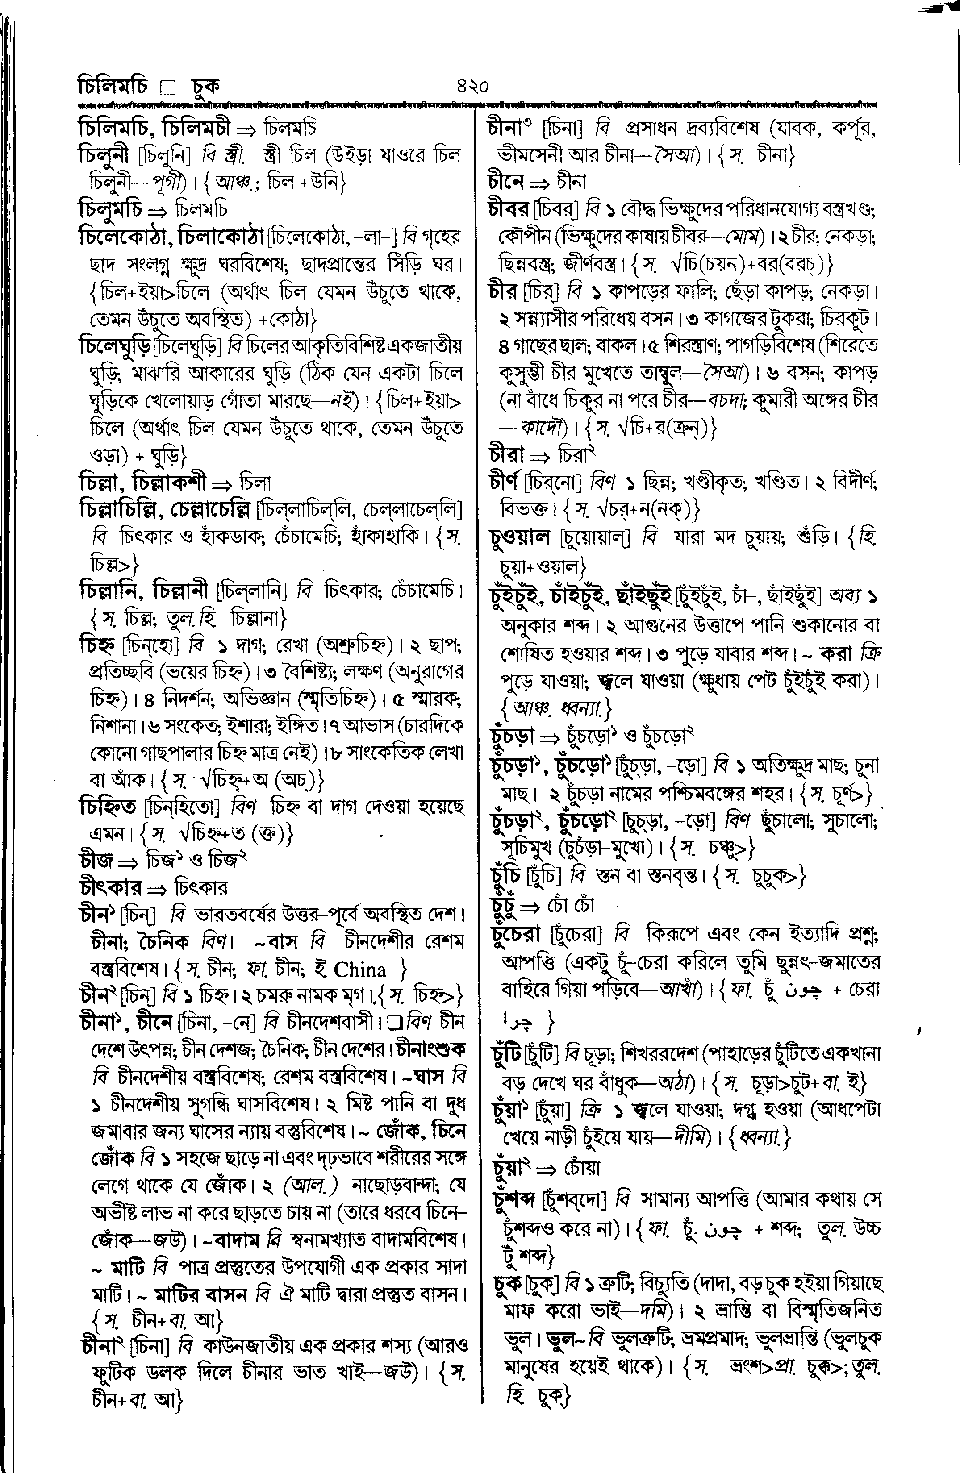 চিলিমচি □ চুক
৪২০
চিলিমচি, চিলিমচী ⇒ চিলমচি
চিলুনী [চিলুনি] বি স্ত্রী. স্ত্রী চিল (উইড়া যাওরে চিল
চিলুনী—পূগী)। {আঞ্চ.; চিল + উনি}
চিলুমচি ⇒ চিলমচি
চিলেকোঠা, চিলাকোঠা [চিলেকোঠা, –লা–] বি গৃহের
ছাদ সংলগ্ন ক্ষুদ্র ঘরবিশেষ; ছাদপ্রান্তের সিঁড়ি ঘর।
{চিল+ইয়া>চিলে (অর্থাৎ চিল যেমন উঁচুতে থাকে,
তেমন উঁচুতে অবস্থিত) +কোঠা}
চিলেঘুড়ি [চিলেঘুড়ি] বি চিলের আকৃতিবিশিষ্ট একজাতীয়
ঘুড়ি; মাঝারি আকারের ঘুড়ি (ঠিক যেন একটা চিলে
ঘুড়িকে খেলোয়াড় গোঁতা মারছে—নই)। {চিল+ইয়া>
চিলে (অর্থাৎ চিল যেমন উঁচুতে থাকে, তেমন উঁচুতে
ওড়া) + ঘুড়ি}
চিল্লা, চিল্লাকশী ⇒ চিলা
চিল্লাচিল্লি, চেল্লাচেল্লি [চিল্‌লাচিল্‌লি, চেল্‌লাচেল্‌লি]
বি চিৎকার ও হাঁকডাক; চেঁচামেচি; হাঁকাহাকি। {স.
চিল্ল>}
চিল্লানি, চিল্লানী [চিল্‌লানি] বি চিৎকার; চেঁচামেচি।
{স. চিল্ল; তুল. হি. চিল্লানা}
চিহ্ন [চিন্‌হো] বি ১ দাগ; রেখা (অশ্রুচিহ্ন)। ২ ছাপ;
প্রতিচ্ছবি (ভয়ের চিহ্ন)। ৩ বৈশিষ্ট্য; লক্ষণ (অনুরাগের
চিহ্ন)। ৪ নিদর্শন; অভিজ্ঞান (স্মৃতিচিহ্ন)। ৫ স্মারক;
নিশানা। ৬ সংকেত; ইশারা; ইঙ্গিত। ৭ আভাস (চারদিকে
কোনো গাছপালার চিহ্ন মাত্র নেই)। ৮ সাংকেতিক লেখা
বা আঁক। {স. √চিহ্ন+অ (অচ)}
চিহ্নিত [চিন্‌হিতো] বিণ চিহ্ন বা দাগ দেওয়া হয়েছে
এমন। {স. √চিহ্ন+ত (ক্ত)}
চীজ ⇒ চিজ১ ও চিজ২
চীৎকার ⇒ চিৎকার
চীন১ [চিন্] বি ভারতবর্ষের উত্তর–পূর্বে অবস্থিত দেশ।
চীনা; চৈনিক বিণ। ~বাস বি চীনদেশীর রেশম
বস্ত্রবিশেষ। {স. চীন; ফা. চীন; ই China }
চীন২ [চিন্] বি ১ চিহ্ন। ২ চমরু নামক মৃগ। {স. চিহ্ন>}
চীনা১, চীনে [চিনা, –নে] বি চীনদেশবাসী। □ বিণ চীন
দেশে উৎপন্ন; চীন দেশজ; চৈনিক; চীন দেশের। চীনাংশুক
বি চীনদেশীয় বস্ত্রবিশেষ; রেশম বস্ত্রবিশেষ। ~ঘাস বি
১ চীনদেশীয় সুগন্ধি ঘাসবিশেষ। ২ মিষ্ট পানি বা দুধ
জমাবার জন্য ঘাসের ন্যায় বস্তুবিশেষ। ~ জোঁক, চিনে
জোঁক বি ১ সহজে ছাড়ে না এবং দৃঢ়ভাবে শরীরের সঙ্গে
লেগে থাকে যে জোঁক। ২ (আল.) নাছোড়বান্দা; যে
অভীষ্ট লাভ না করে ছাড়তে চায় না (তারে ধরবে চিনে–
জোঁক—জউ)। ~বাদাম বি স্বনামখ্যাত বাদামবিশেষ।
~ মাটি বি পাত্র প্রস্তুতের উপযোগী এক প্রকার সাদা
মাটি। ~ মাটির বাসন বি ঐ মাটি দ্বারা প্রস্তুত বাসন।
{স. চীন+বা. আ}
চীনা২ [চিনা] বি কাউনজাতীয় এক প্রকার শস্য (আরও
ফুটিক ডলক দিলে চীনার ভাত খাই—জউ)। {স.
চীন+বা. আ}
চীনা৩ [চিনা] বি প্রসাধন দ্রব্যবিশেষ (যাবক, কর্পূর,
ভীমসেনী আর চীনা—সৈআ)। {স. চীনা}
চীনে ⇒ চীনা
চীবর [চিবর] বি ১ বৌদ্ধ ভিক্ষুদের পরিধানযোগ্য বস্ত্রখণ্ড;
কৌপীন (ভিক্ষুদের কাষায় চীবর—মোম)। ২ চীর; নেকড়া;
ছিন্নবস্ত্র; জীর্ণবস্ত্র। {স. √চি(চয়ন)+বর(বরচ্)}
চীর [চির্] বি ১ কাপড়ের ফালি; ছেঁড়া কাপড়; নেকড়া।
২ সন্ন্যাসীর পরিধেয় বসন। ৩ কাগজের টুকরা; চিরকুট।
৪ গাছের ছাল; বাকল। ৫ শিরস্ত্রাণ; পাগড়িবিশেষ (শিরেতে
কুসুম্ভী চীর মুখেতে তাম্বুল—সৈআ)। ৬ বসন; কাপড়
(না বাঁধে চিকুর না পরে চীর—বচদা; কুমারী অঙ্গের চীর
—কাদৌ)। {স. √চি+র(ক্রন্)}
চীরা ⇒ চিরা২
চীর্ণ [চির্‌নো] বিণ ১ ছিন্ন; খণ্ডীকৃত; খণ্ডিত। ২ বিদীর্ণ;
বিভক্ত। {স. √চর্+ন(নক্)}
চুওয়াল [চুয়োয়াল্] বি যারা মদ চুয়ায়; শুঁড়ি। {হি.
চুয়া+ওয়াল}
চুঁইচুঁই, চাঁইচুঁই, ছাঁইছুঁই [চুঁইচুঁই, চাঁ–, ছাঁইছুঁই] অব্য ১
অনুকার শব্দ। ২ আগুনের উত্তাপে পানি শুকানোর বা
শোষিত হওয়ার শব্দ। ৩ পুড়ে যাবার শব্দ। ~ করা ক্রি
পুড়ে যাওয়া; জ্বলে যাওয়া (ক্ষুধায় পেট চুঁইচুঁই করা)।
{আঞ্চ. ধ্বন্যা.}
চুঁচড়া ⇒ চুঁচড়ো১ ও চুঁচড়ো২
চুঁচড়া১, চুঁচড়ো১ [চুঁচ্‌ড়া, –ড়ো] বি ১ অতিক্ষুদ্র মাছ; চুনা
মাছ। ২ চুঁচড়া নামের পশ্চিমবঙ্গের শহর। {স. চূর্ণ>}
চুঁচড়া২, চুঁচড়ো২ [চুচ্‌ড়া, –ড়ো] বিণ ছুঁচালো; সূচালো;
সূচিমুখ (চুচঁড়া–মুখো)। {স. চঞ্চু>}
চুঁচি [চুঁচি] বি স্তন বা স্তনবৃন্ত। {স. চুচুক>}
চুঁচুঁ ⇒ চোঁ চোঁ
চুঁচেরা [চুঁচেরা] বি কিরূপে এবং কেন ইত্যাদি প্রশ্ন;
আপত্তি (একটু চূঁ–চেরা করিলে তুমি ছুন্নৎ–জমাতের
বাহিরে গিয়া পড়িবে—আখাঁ)। {ফা. চূঁ چون + চেরা
چرا }
চুঁটি [চুঁটি] বি চূড়া; শিখরদেশ (পাহাড়ের চুঁটিতে একখানা
বড় দেখে ঘর বাঁধুক—অঠা)। {স. চূড়া>চুট+বা. ই}
চুঁয়া১ [চুঁয়া] ক্রি ১ জ্বলে যাওয়া; দগ্ধ হওয়া (আধপেটা
খেয়ে নাড়ী চুঁইয়ে যায়—দীমি)। {ধ্বন্যা.}
চুঁয়া২ ⇒ চোঁয়া
চুঁশব্দ [চুঁশব্‌দো] বি সামান্য আপত্তি (আমার কথায় সে
চুঁশব্দও করে না)। {ফা. চুঁ. چون + শব্দ; তুল. উচ্চ
টুঁ শব্দ}
চুক [চুক্] বি ১ ত্রুটি; বিচ্যুতি (দাদা, বড় চুক হইয়া গিয়াছে
মাফ করো ভাই—দমি)। ২ ভ্রান্তি বা বিস্মৃতিজনিত
ভুল। ভুল~ বি ভুলত্রুটি; ভ্রমপ্রমাদ; ভুলভ্রান্তি (ভুলচুক
মানুষের হয়েই থাকে)। {স. ভ্রংশ>প্রা. চুক্ক>; তুল.
হি. চুক্}